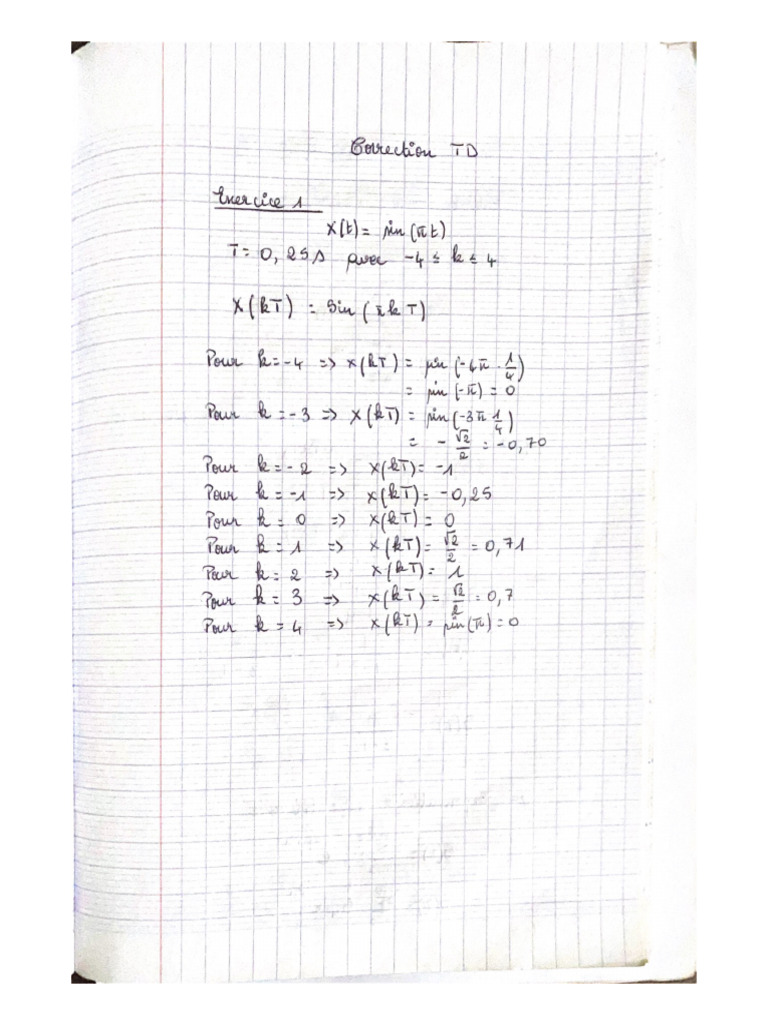 Correction TD
Exercice 1
x(t) = sin(πt)
T = 0,25s avec -4 ≤ k ≤ 4
x(kT) = Sin(πkT)
Pour k = -4 => x(kT) = sin(-4π · 1/4)
= sin(-π) = 0
Pour k = -3 => x(kT) = sin(-3π 1/4)
= - √2/2 = -0,70
Pour k = -2 => x(kT) = -1
Pour k = -1 => x(kT) = -0,25
Pour k = 0 => x(kT) = 0
Pour k = 1 => x(kT) = √2/2 = 0,71
Pour k = 2 => x(kT) = 1
Pour k = 3 => x(kT) = √2/2 = 0,7
Pour k = 4 => x(kT) = sin(π) = 0